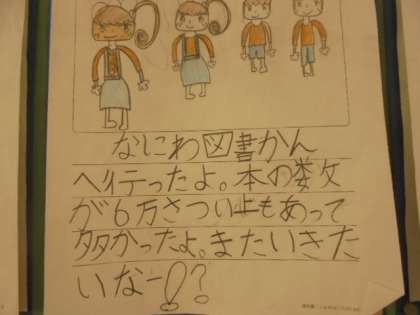 なにわ図書かん
へ行ったよ。本の数
が6万さつい上もあって
多かったよ。またいきた
いなー!?